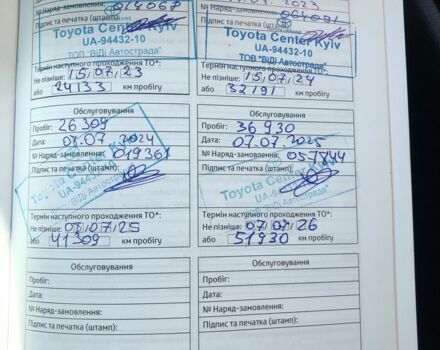 № Наряд-замовлення: 014068
Підпис та печатка (штамп):
Toyota Center Kyiv
UA-94432-10
ТОВ "ВіДі Автострада"
Термін наступного проходження ТО*:
Не пізніше: 15/07/23
або 24133 км пробігу
2023
№ Наряд-замовлення: 064091
Підпис та печатка (штамп):
Toyota Center Kyiv
UA-94432-10
ТОВ "ВіДі Автострада"
Термін наступного проходження ТО*:
Не пізніше: 15/07/24
або 32191 км пробігу
Обслуговування
Пробіг: 26309
Дата: 08.07.2024
№ Наряд-замовлення: 019361
Підпис та печатка (штамп):
Toyota Center Kyiv
UA-94432-10
"ВіДі Автострада"
Термін наступного проходження ТО*:
Не пізніше: 08/07/25
або 41309 км пробігу
Обслуговування
Пробіг: 36930
Дата: 07.07.2025
№ Наряд-замовлення:
Підпис та печатка (штамп):
Toyota Center Kyiv
UA-94432-10
"ВіДі Автострада"
Термін наступного проходження ТО*:
Не пізніше: 07/07/26
або 51930 км пробігу
Обслуговування
Пробіг:
Дата:
№ Наряд-замовлення:
Підпис та печатка (штамп):
Обслуговування
Пробіг:
Дата:
№ Наряд-замовлення:
Підпис та печатка (штамп):